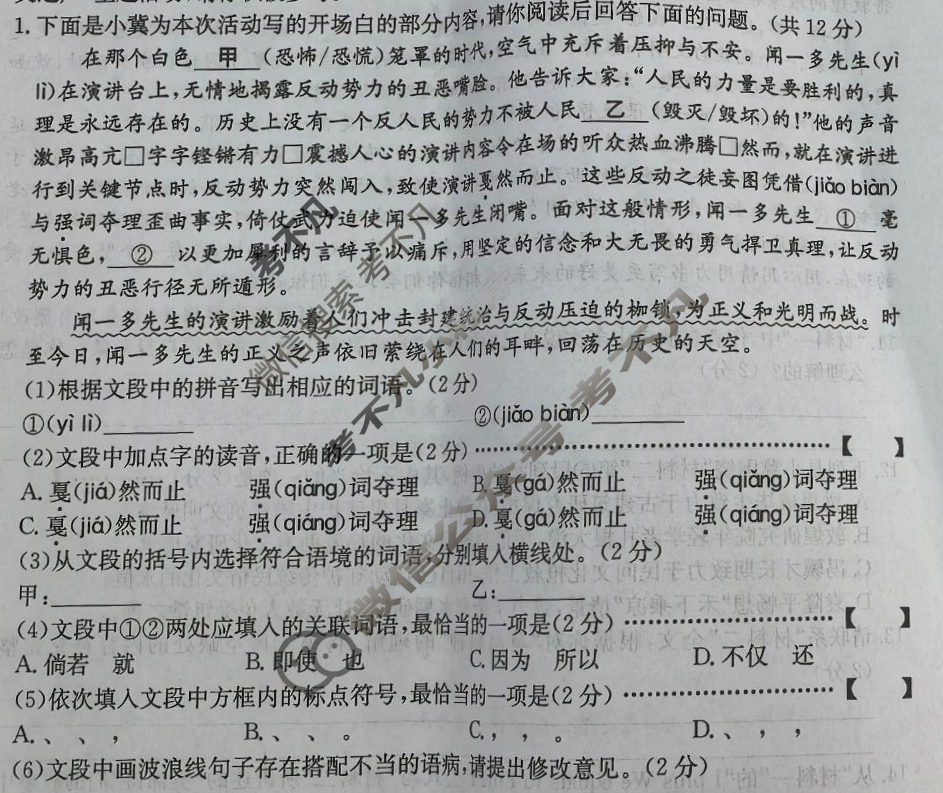 1.下面是小冀为本次活动写的开场白的部分内容,请你阅读后回答下面的问题。(共12分)
在那个白色 甲 (恐怖/恐慌)笼罩的时代,空气中充斥着压抑与不安。闻一多先生(yì
lì)在演讲台上,无情地揭露反动势力的丑恶嘴脸。他告诉大家:“人民的力量是要胜利的,真
理是永远存在的。历史上没有一个反人民的势力不被人民 乙 (毁灭/毁坏)的!”他的声音
激昂高亢□字字铿锵有力□震撼人心的演讲内容令在场的听众热血沸腾□然而,就在演讲进
行到关键节点时,反动势力突然闯入,致使演讲戛然而止。这些反动之徒妄图凭借(jiǎo biàn)
与强词夺理歪曲事实,倚仗武力迫使闻一多先生闭嘴。面对这般情形,闻一多先生 ① 毫
无惧色, ② 以更加犀利的言辞予以痛斥,用坚定的信念和大无畏的勇气捍卫真理,让反动
势力的丑恶行径无所遁形。
闻一多先生的演讲激励着人们冲击封建统治与反动压迫的枷锁,为正义和光明而战。时
至今日,闻一多先生的正义之声依旧萦绕在人们的耳畔,回荡在历史的天空。
(1)根据文段中的拼音写出相应的词语。(2分)
①(yì lì)________ ②(jiǎo biàn)________
(2)文段中加点字的读音,正确的一项是(2分)………………………………【 】
A.戛(jiá)然而止 强(qiǎng)词夺理 B.戛(gá)然而止 强(qiǎng)词夺理
C.戛(jiá)然而止 强(qiáng)词夺理 D.戛(gá)然而止 强(qiáng)词夺理
(3)从文段的括号内选择符合语境的词语,分别填入横线处。(2分)
甲:________ 乙:________
(4)文段中①②两处应填入的关联词语,最恰当的一项是(2分)……………………【 】
A.倘若 就 B.即使 也 C.因为 所以 D.不仅 还
(5)依次填入文段中方框内的标点符号,最恰当的一项是(2分)……………………【 】
A.、 、 , B.、 、 。 C., , 。 D.、 , ,
(6)文段中画波浪线句子存在搭配不当的语病,请提出修改意见。(2分)
微信搜索 考不凡
考不凡
微信公众号 考不凡